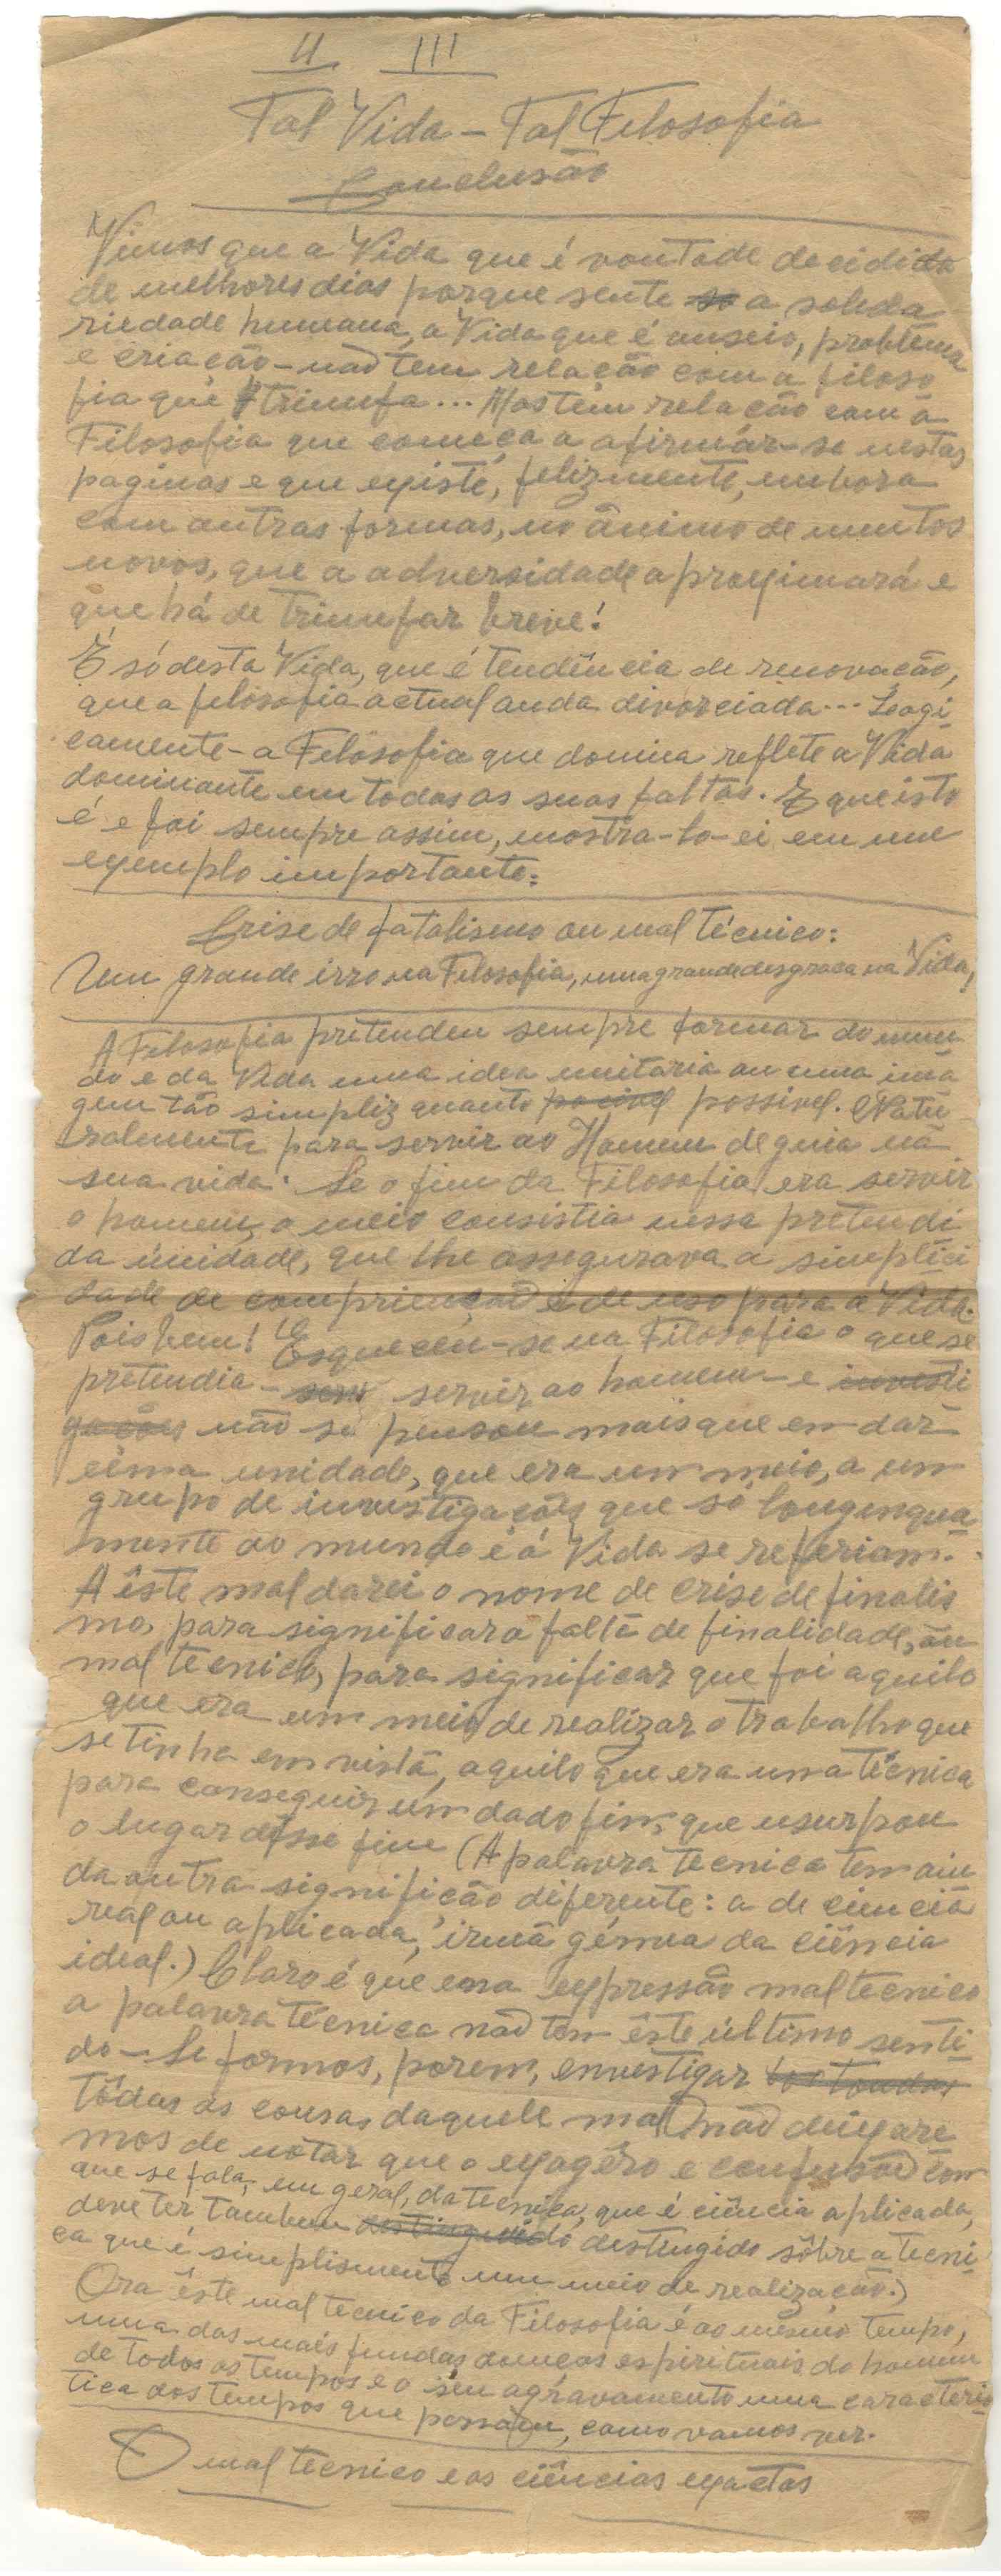 II III
Tal Vida - Tal Filosofia
Conclusão
Vimos que a Vida que é vontade decidida
de melhores dias porque sente so a solida
riedade humana, a Vida que é anseio, problema
e criação - não tem relação com a filoso
fia que triumfa... Mas tem relação com a
Filosofia que começa a afirmar-se nestas
paginas e que existe, felizmente, embora
com outras formas, no ânimo de muitos
novos, que a adversidade aproximará e
que há de triumfar breve!
É só desta Vida, que é tendência de renovação,
que a filosofia actual anda divorciada... Logi-
camente - a Filosofia que domina reflete a Vida
dominante em todas as suas faltas. E que isto
é e foi sempre assim, mostra-lo-ei em um
exemplo importante:
Crise de fatalismo ou mal técnico:
Um grande irro na Filosofia, uma grande desgraca na Vida,
A Filosofia pretendeu sempre formar do mun-
do e da Vida uma idea unitaria ou uma ima
gem tão simpliz quanto pocivel possivel. Natu-
ralmente para servir ao Homem de guia na
sua vida. Se o fim da Filosofia era servir
o homem, o meio consistia nessa pretendi
da unidade, que lhe assegurava a simplici
dade de comprienção e de uso para a Vida.
Pois bem! Esqueceu-se na Filosofia o que se
pretendia - servir ao homem - e investi
gações não se pensou mais que em dar
uma unidade, que era um meio, a um
grupo de investigações que só longinqua-
mente ao mundo e á Vida se referiam.
A êste mal darei o nome de crise de finalis
mo, para significar a falta de finalidade, ou
mal tecnico, para significar que foi aquilo
que era um meio de realizar o trabalho que
se tinha em vista, aquilo que era uma técnica
para conseguir um dado fim, que usurpou
o lugar dêsse fim (A palavra tecnica tem ain
da outra significão diferente: a de ciencia
real ou aplicada, irmã gémea da ciência
ideal.) Claro é que na expressão mal tecnico
a palavra técnica não tem êste último senti-
do - Se formos, porem, envestigar
tôdas as cousas daquele mal não deixare
mos de notar que o exagêro e confusão com
que se fala, em geral, da tecnica, que é ciência aplicada,
deve ter tambem destinguido destingido sôbre a tecni-
ca que é simplismente um meio de realização.)
Ora êste mal tecnico da Filosofia é ao mêsmo tempo,
uma das mais fundas doenças espirituais do homem
de todos os tempos e o seu agravamento uma caracteris-
tica dos tempos que passam, como vamos ver.
O mal tecnico e as ciências exactas